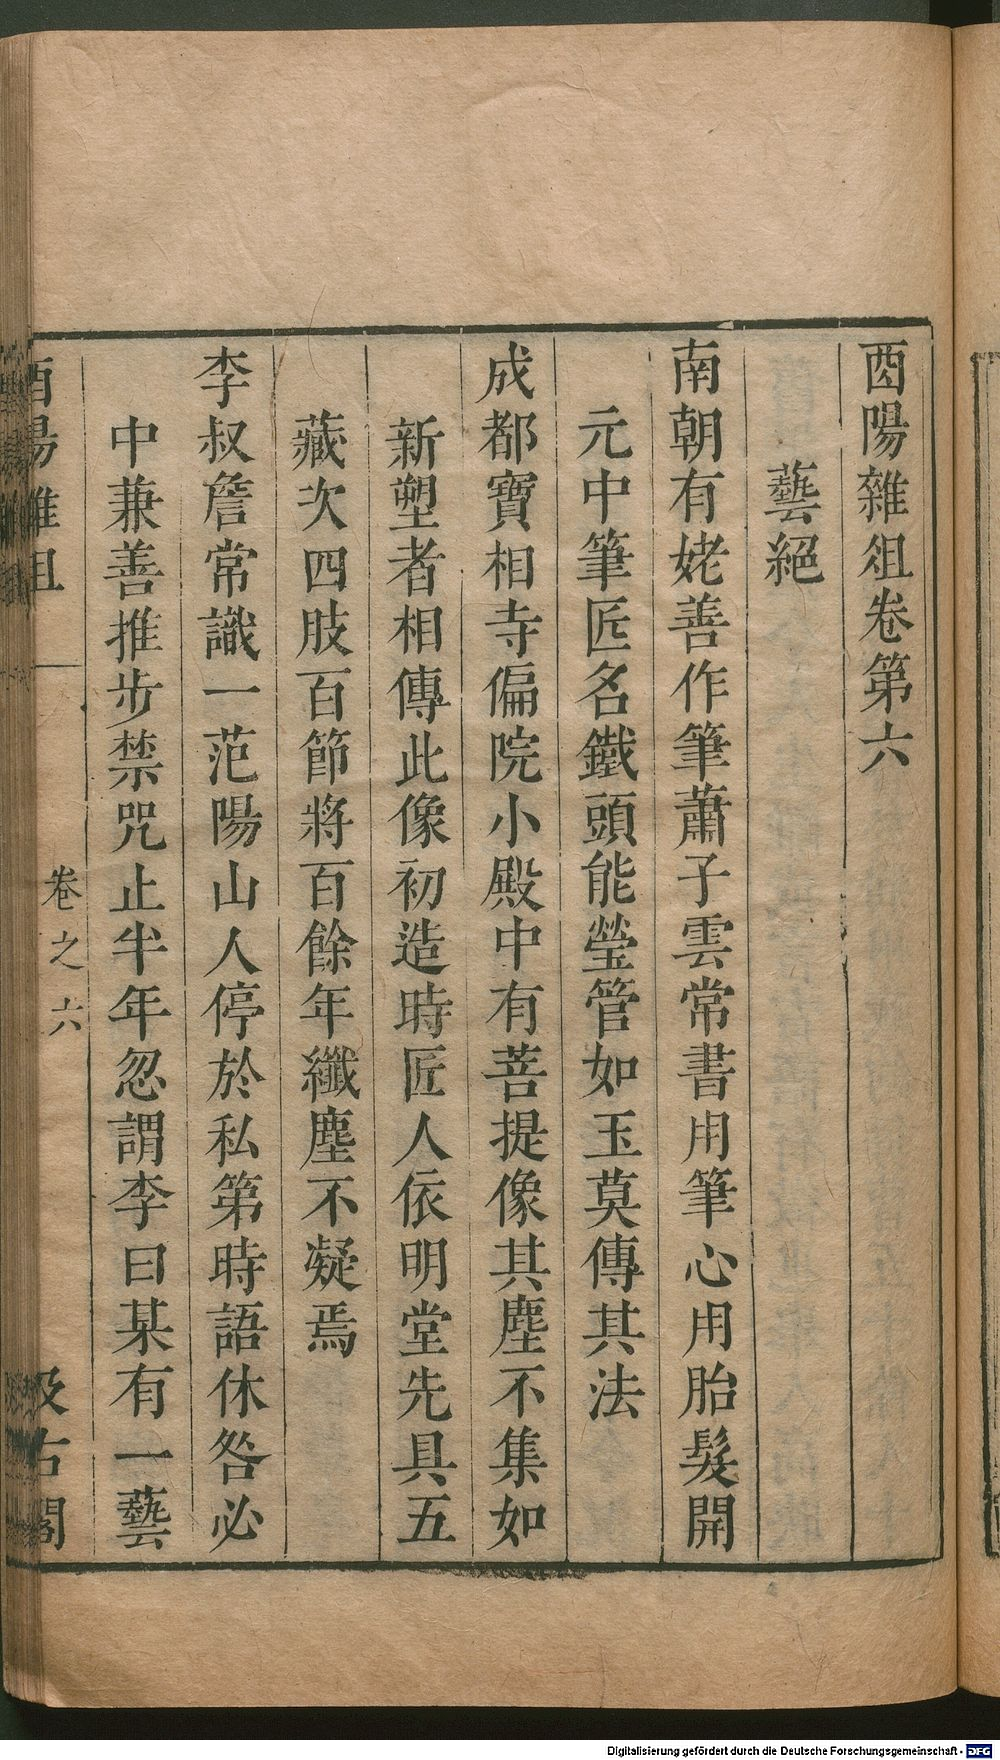 酉陽雜俎卷第六
藝絕
南朝有姥善作筆蕭子雲常書用筆心用胎髮開
元中筆匠名鐵頭能瑩管如玉莫傳其法
成都寶相寺偏院小殿中有菩提像其塵不集如
新塑者相傳此像初造時匠人依明堂先具五
藏次四肢百節將百餘年纖塵不凝焉
李叔詹常識一范陽山人停於私第時語休咎必
中兼善推步禁咒止半年忽謂李曰某有一藝
酉陽雜俎
卷之六
汲古閣
Digitalisierung gefördert durch die Deutsche Forschungsgemeinschaft - DFG